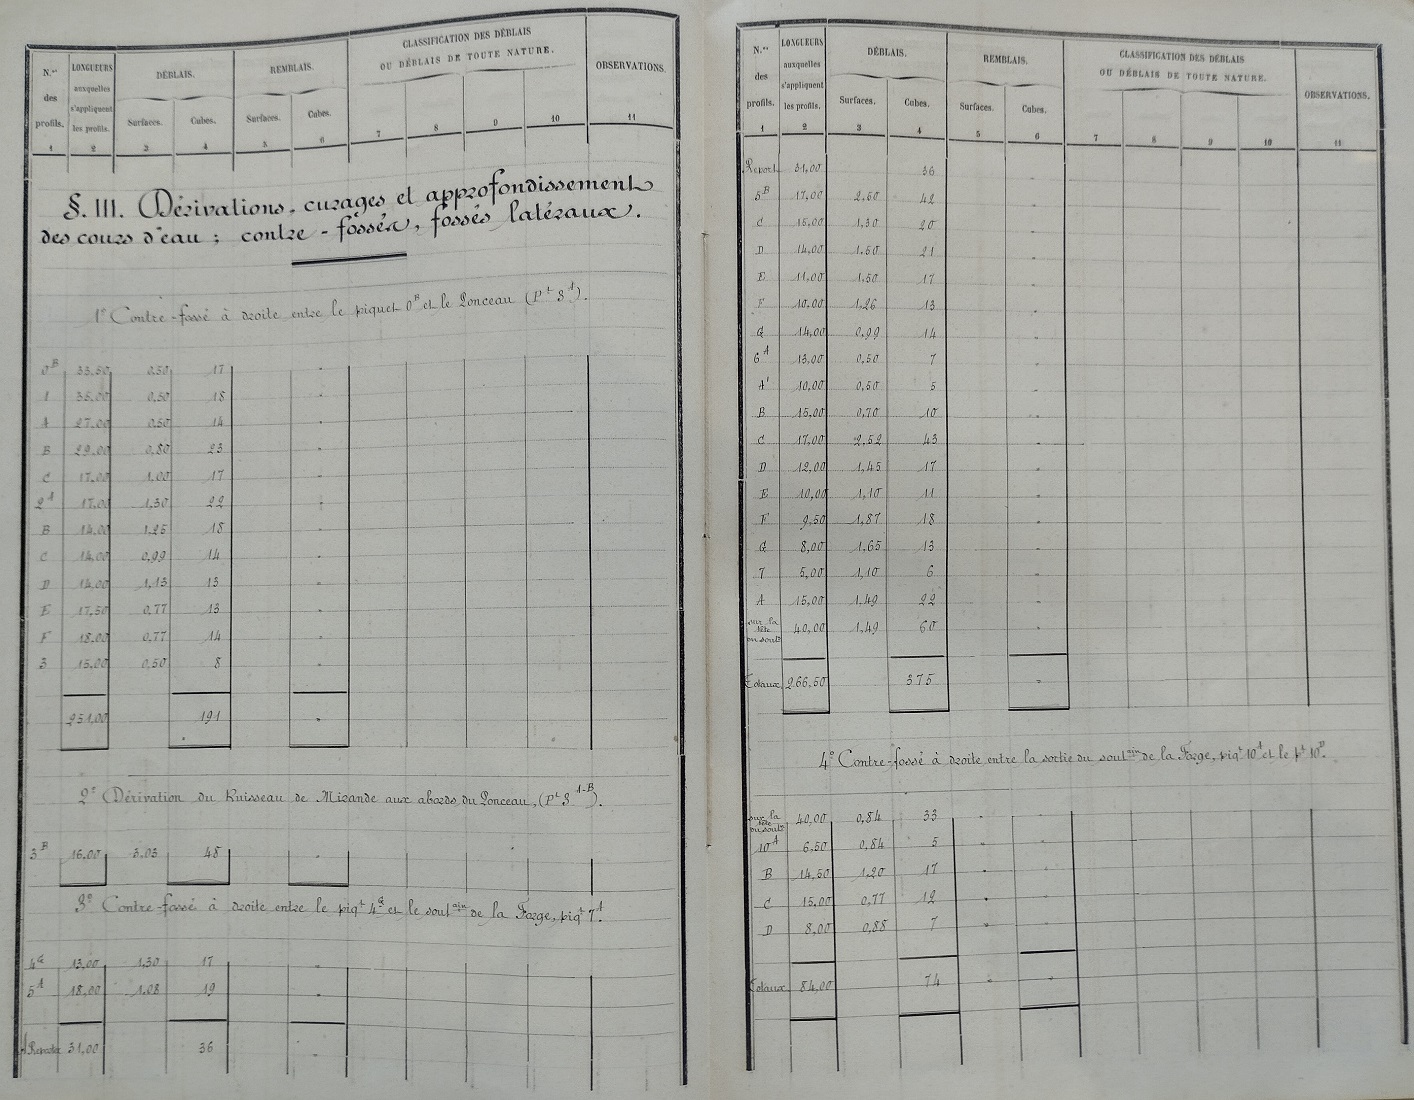 N.os des profils.
LONGUEURS auxquelles s'appliquent les profils.
DÉBLAIS.
Surfaces. Cubes.
REMBLAIS.
Surfaces. Cubes.
CLASSIFICATION DES DÉBLAIS
OU DÉBLAIS DE TOUTE NATURE.
OBSERVATIONS.
1 2 3 4 5 6 7 8 9 10 11
§. III. Dérivations, curages et approfondissement
des cours d'eau ; contre-fossés, fossés latéraux.
1° Contre-fossé à droite entre le piquet 0B et le Ponceau (Pt 3A).
0B 33,50 0,50 17
1 35,00 0,50 18
A 27,00 0,50 14
B 29,00 0,80 23
C 17,00 1,00 17
2A 17,00 1,30 22
B 14,00 1,25 18
C 14,00 0,99 14
D 14,00 1,13 13
E 17,50 0,77 13
F 18,00 0,77 14
3 15,00 0,50 8
251,00 191
2° Dérivation du Ruisseau de Mirande aux abords du Ponceau, (Pt 3 A-B).
3B 16,00 3,03 48
3° Contre-fossé à droite entre le piqt 4G et le soutain de la Farge, piqt 7A.
4G 13,00 1,30 17
5A 18,00 1,08 19
A Reporter 31,00 36
N.os des profils.
LONGUEURS auxquelles s'appliquent les profils.
DÉBLAIS.
Surfaces. Cubes.
REMBLAIS.
Surfaces. Cubes.
CLASSIFICATION DES DÉBLAIS
OU DÉBLAIS DE TOUTE NATURE.
OBSERVATIONS.
1 2 3 4 5 6 7 8 9 10 11
Report 31,00 36
5B 17,00 2,50 42
C 15,00 1,30 20
D 14,00 1,50 21
E 11,00 1,50 17
F 10,00 1,26 13
G 14,00 0,99 14
6A 13,00 0,50 7
A' 10,00 0,50 5
B 15,00 0,70 10
C 17,00 2,52 43
D 12,00 1,45 17
E 10,00 1,10 11
F 9,50 1,87 18
G 8,00 1,65 13
7 5,00 1,10 6
A 15,00 1,49 22
sur la tête du soutn 40,00 1,49 60
Totaux 266,50 375
4° Contre-fossé à droite entre la sortie du soutain de la Farge, piqt 10A et le pt 10D.
sur la tête du soutn 40,00 0,84 33
10A 6,50 0,84 5
B 14,50 1,20 17
C 15,00 0,77 12
D 8,00 0,88 7
Totaux 84,00 74